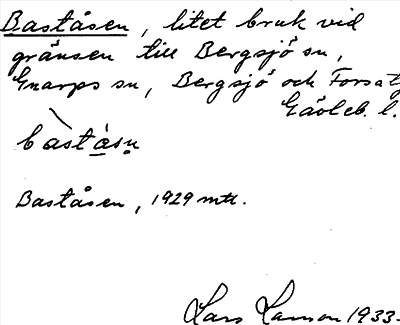 Baståsen, litet bruk vid
gränsen till Bergsjö sn,
Gnarps sn, Bergsjö och Forsa tg
Gävleb. l.
bàstá̱sṇ
Baståsen, 1929 mtl.
Lars Larsson 1933.